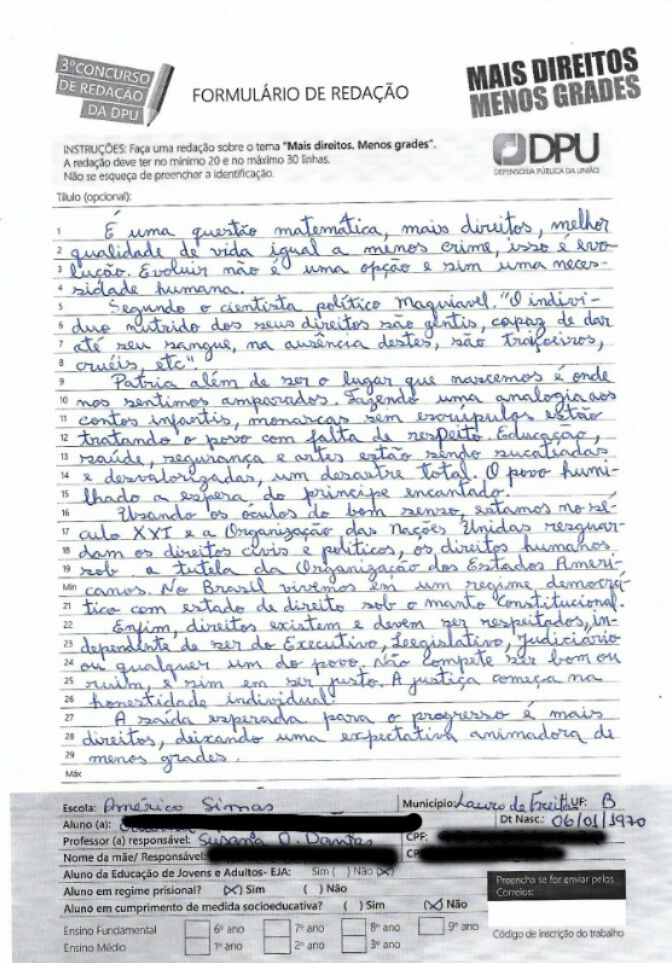 3º CONCURSO
DE REDAÇÃO
DA DPU
FORMULÁRIO DE REDAÇÃO
MAIS DIREITOS
MENOS GRADES
INSTRUÇÕES: Faça uma redação sobre o tema "Mais direitos. Menos grades".
A redação deve ter no mínimo 20 e no máximo 30 linhas.
Não se esqueça de preencher a identificação.
DPU
DEFENSORIA PÚBLICA DA UNIÃO
Título (opcional):
1 É uma questão matemática, mais direitos, melhor
2 qualidade de vida igual a menos crime, isso é evo
3 lução. Evoluir não é uma opção e sim uma neces-
4 sidade humana.
5 Segundo o cientista político Maquiavel. "O indivi-
6 duo nutrido dos seus direitos são gentis, capaz de dar
7 até seu sangue, na ausência destes, são traiçoeiros,
8 cruéis, etc".
9 Patria além de ser o lugar que nascemos é onde
10 nos sentimos amparados. Fazendo uma analogia aos
11 contos infantis, monarcas sem escrúpulos estão
12 tratando o povo com falta de respeito. Educação,
13 saúde, segurança e artes estão sendo sucateadas
14 e desvalorizadas, um desastre total. O povo humi-
15 lhado a espera do principe encantado.
16 Usando os óculos do bom senso, estamos no sé-
17 culo XXI e a Organização das Nações Unidas resguar
18 dam os direitos civis e politicos, os direitos humanos
19 sob a tutela da Organização dos Estados Ameri-
Mín canos. No Brasil vivemos em um regime democrá-
21 tico com estado de direito sob o manto Constitucional.
22 Enfim, direitos existem e devem ser respeitados, in-
23 dependente de ser do Executivo, Leegislativo, Judiciário
24 ou qualquer um do povo. Não compete ser bom ou
25 ruim, e sim em ser justo. A justiça começa na
26 honestidade individual!
27 A saída esperada para o progresso é mais
28 direitos, deixando uma expectativa animadora de
29 menos grades.
Máx
Escola: Américo Simas Município: Lauro de Freitas UF: B
Aluno (a): Dt Nasc.: 06/01/1970
Professor (a) responsável: Susana O. Dantas CPF:
Nome da mãe/ Responsável:
Aluno da Educação de Jovens e Adultos- EJA: Sim ( ) Não (X)
Aluno em regime prisional? (X) Sim ( ) Não
Aluno em cumprimento de medida socioeducativa? ( ) Sim (X) Não
Preencha se for enviar pelos
Correios:
Ensino Fundamental 6º ano 7º ano 8º ano 9º ano
Ensino Médio 1º ano 2º ano 3º ano
Código de inscrição do trabalho